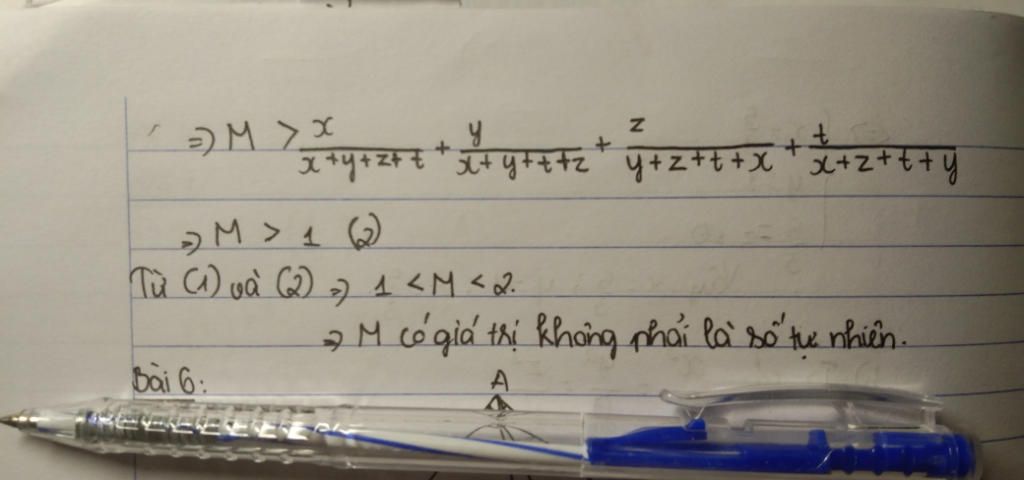 => M > x/(x+y+z+t) + y/(x+y+t+z) + z/(y+z+t+x) + t/(x+z+t+y)
=> M > 1 (2)
Từ (1) và (2) => 1 < M < 2.
=> M có giá trị không phải là số tự nhiên.
Bài 6:
A